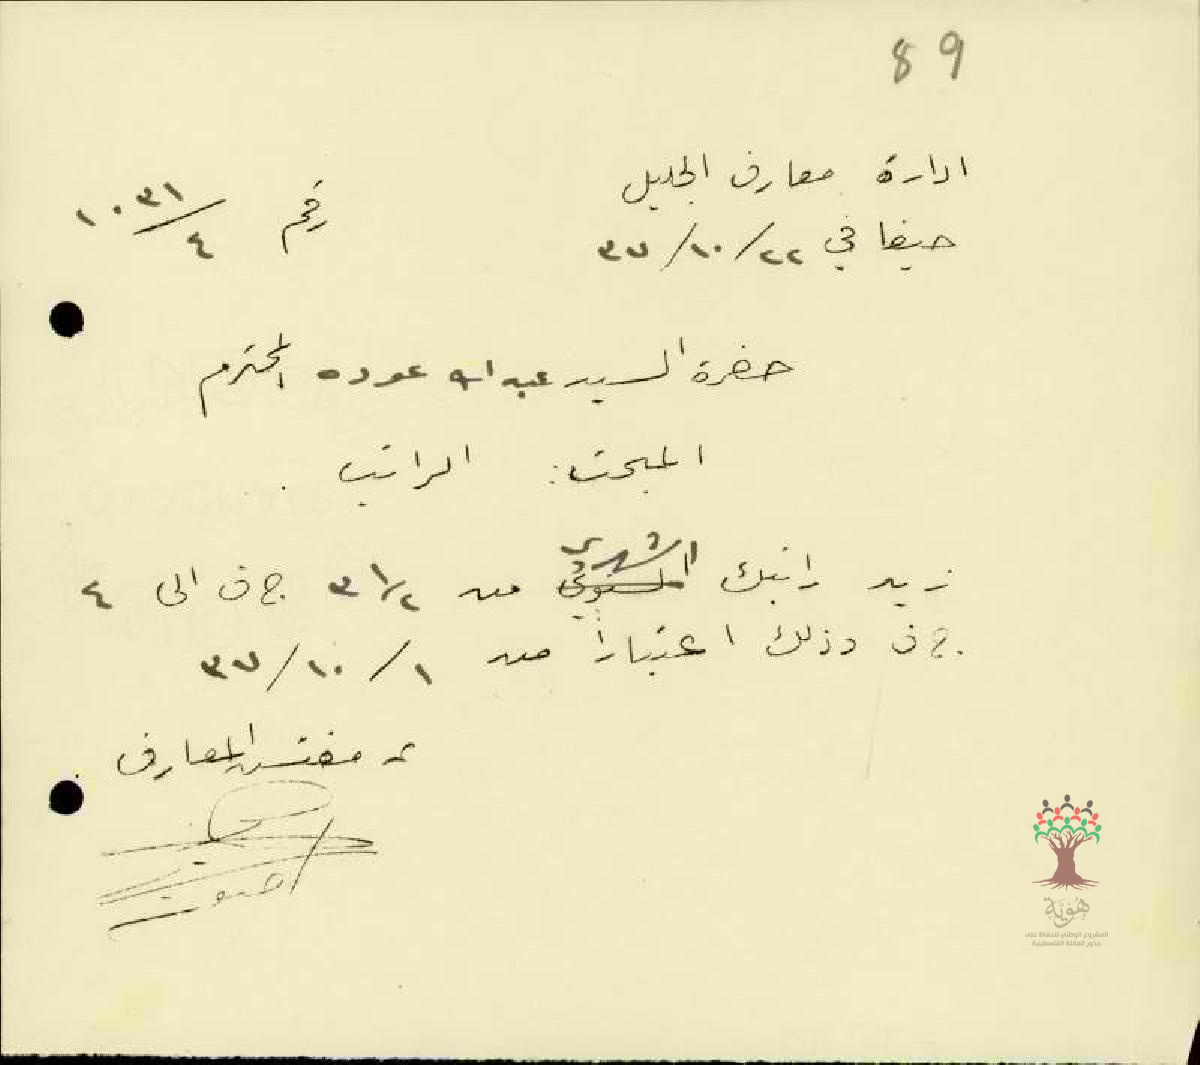 89
ادارة معارف الجليل
رقم ١٠٣١/٤
حيفا في ٢٢/١٠/٣٧
حضرة السيد عبد الله عوده المحترم
المبحث: الراتب
زيد راتبك السنوي الشهري من ٣ ١/٢ ج ف الى ٤
ج ف وذلك اعتباراً من ١/١٠/٣٧
مفتش المعارف
هُوِيَّة
المشروع الوطني للحفاظ على
جذور العائلة الفلسطينية